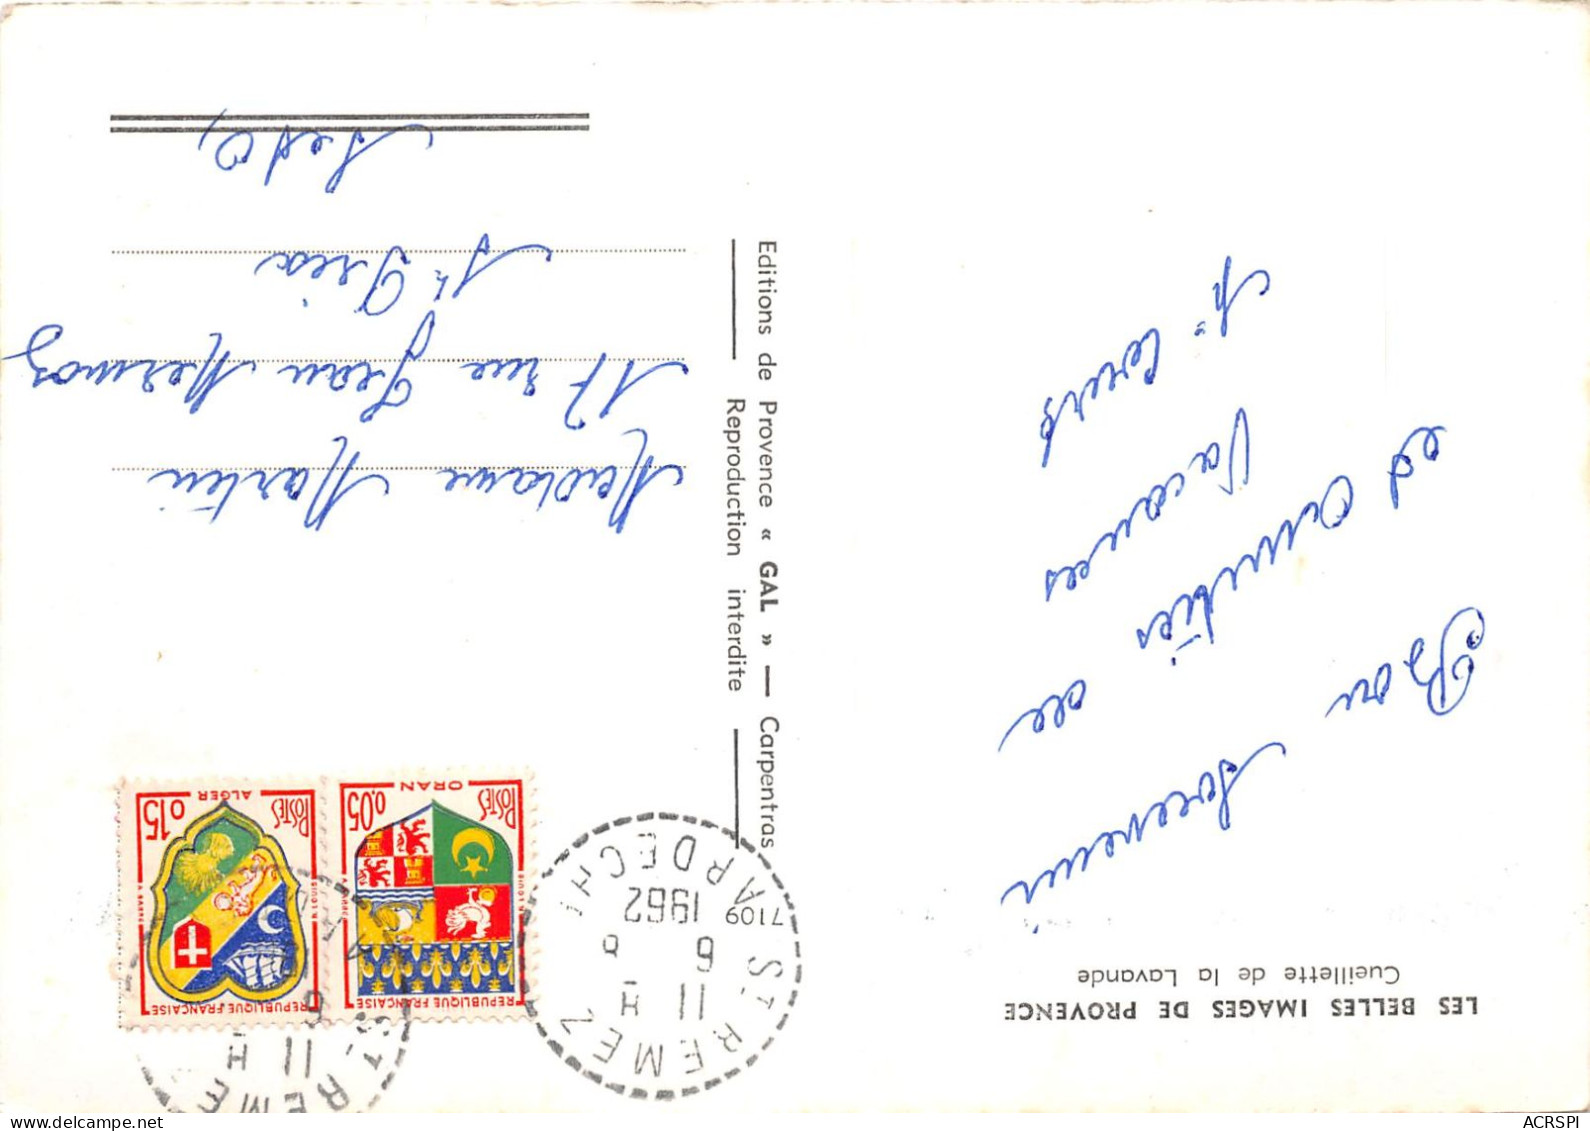 LES BELLES IMAGES DE PROVENCE
Cueillette de la Lavande
Bon Souvenir
et Amitiés de
Vacances
Editions de Provence « GAL » — Carpentras
Reproduction interdite
REPUBLIQUE FRANÇAISE
POSTES
0.05
ORAN
REPUBLIQUE FRANÇAISE
POSTES
0.15
ALGER
ST REMEZ
11 H
6 9
1962
7109
ARDECHE
ST REMEZ
11 H
Madame Martin
17 rue Jean Mermoz
St Priest
ACRSPI